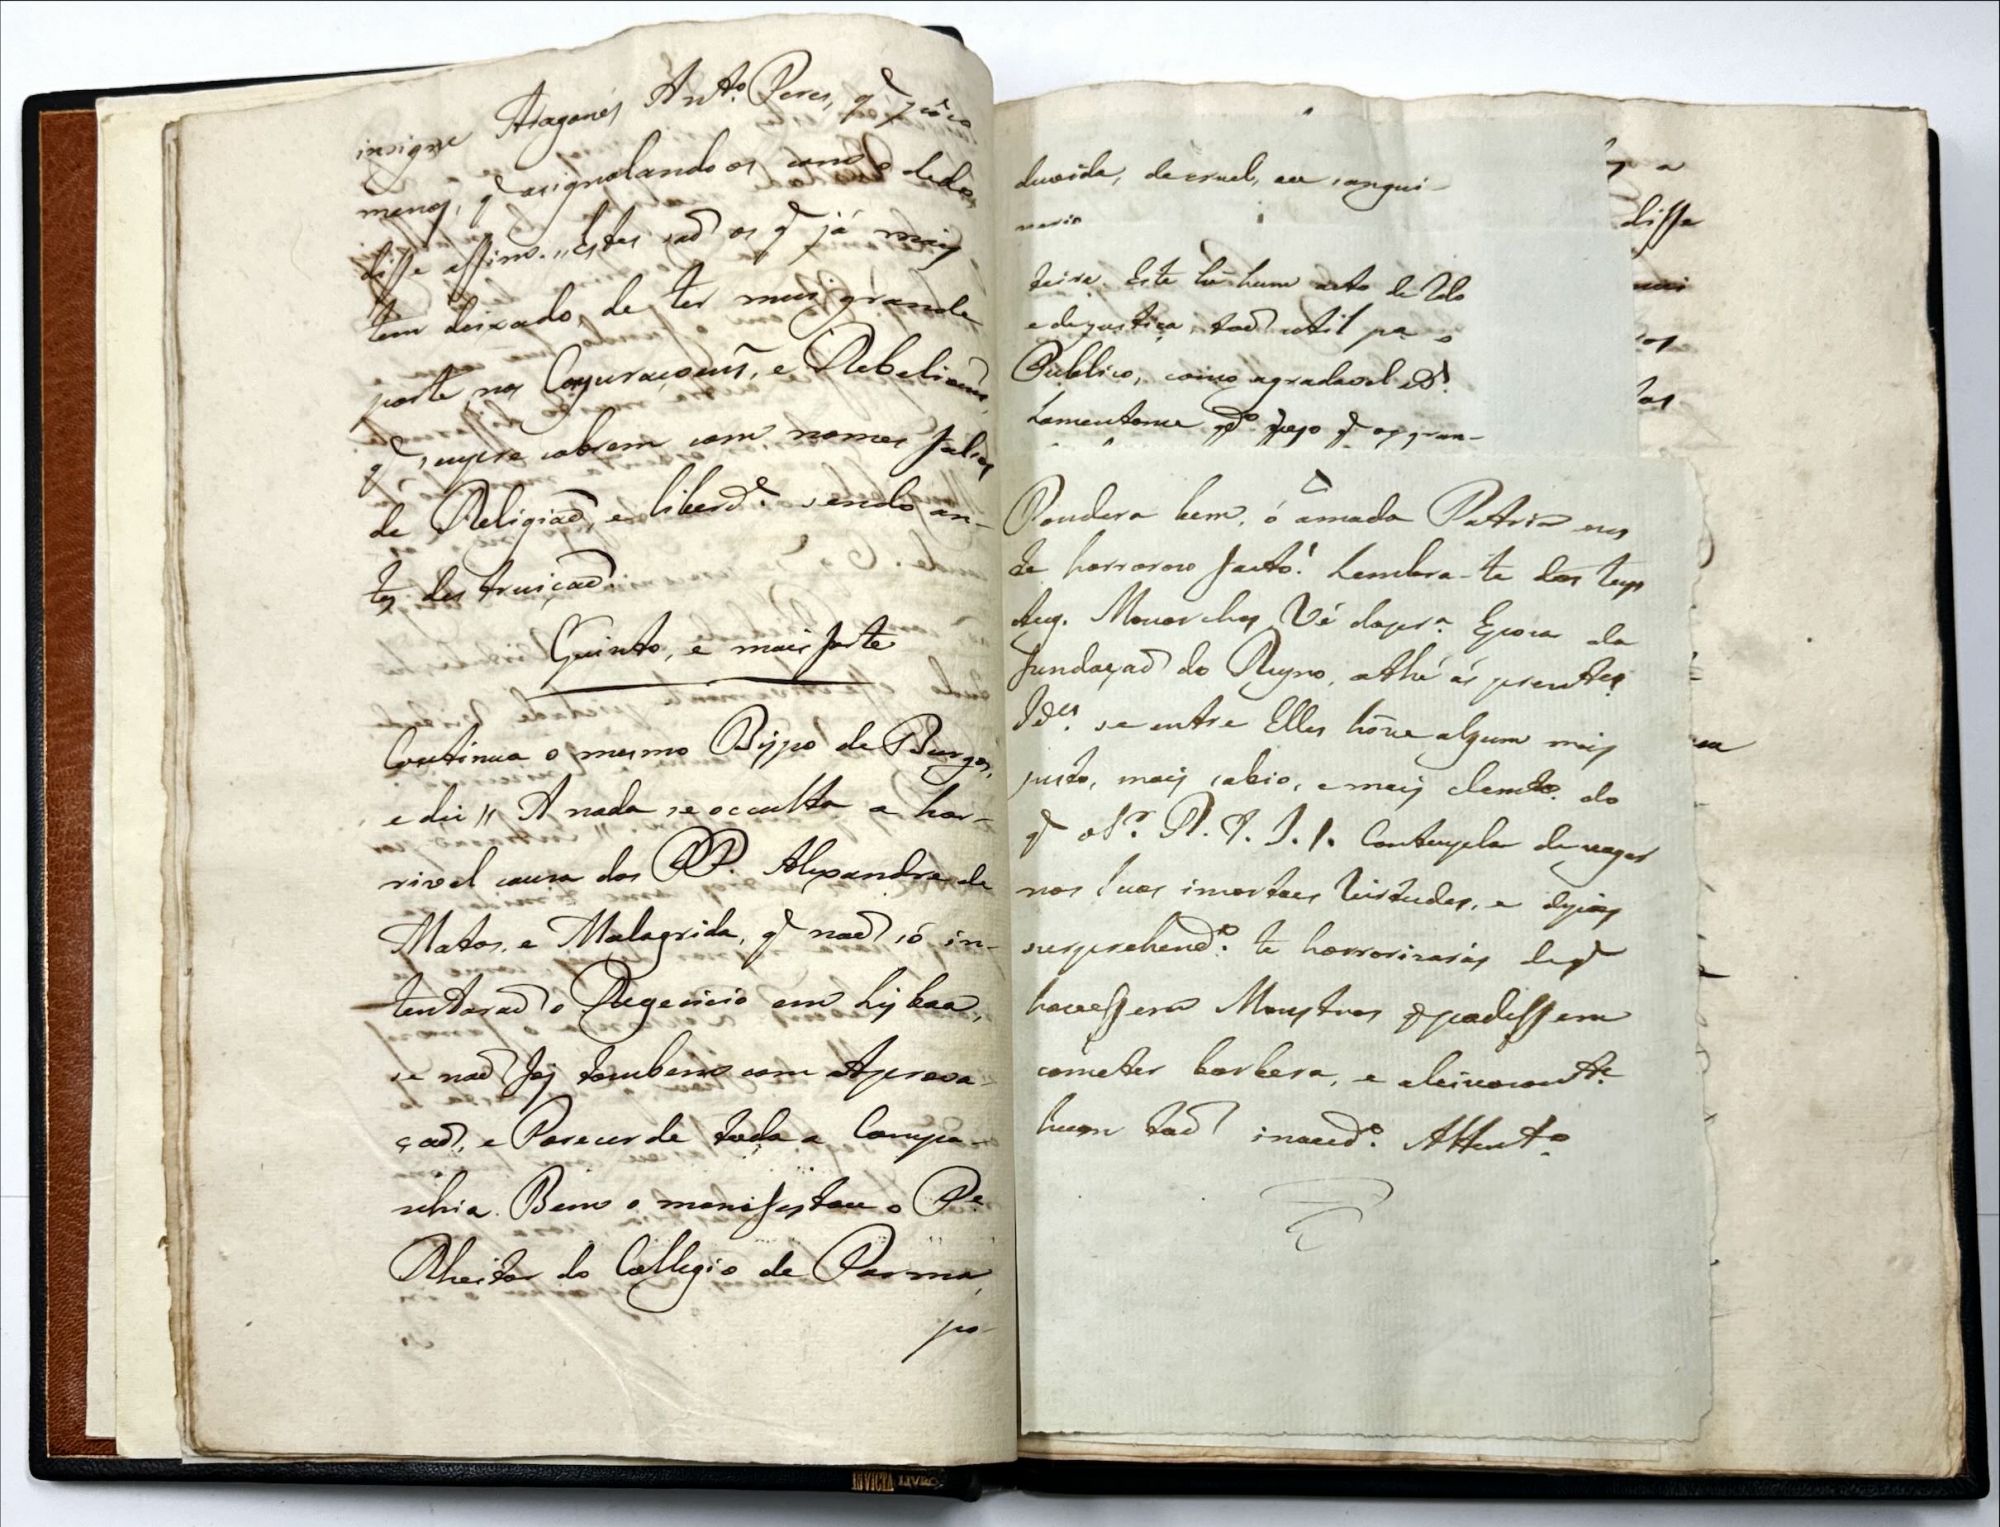 insigne Aragonés Ant.o Peres, q
menos, q asignalando os como o dedo
disse assim. „Estes saõ os q já mais
tem deixado, de ter mui grande
parte nas Conjuraçoens, e Rebelioens,
q sempre cobrem com nomes falsos
de Religiaõ, e liberd.e sendo an-
tes destruiçaõ
Quinto, e mais forte
Continua o mesmo Bispo de Burgos,
e diz „ A nada se occulta a hor-
rivel causa dos PP. Alexandre de
Matos, e Malagrida, q naõ só in-
tentaraõ o Regecicio em Lisboa,
se naõ foi tambem com Aprova-
çaõ, e Parecer de toda a Compa-
nhia. Bem o manifestou o P.e
Rheitor do Collegio de Parma,
po-
duvida, de cruel, ou sangui-
nario
teira. Este he hum acto de Zelo
e de justiça, taõ util pa o
Publico, como agradavel a D.s
Lamentome q.do vejo q os gran-
Pondera bem, ó amada Patria nes
te horroroso facto! Lembra-te dos teus
Aug. Monarchas Vé da pr.a Epoca da
fundaçaõ do Reyno, athé ás presentes
Id.es se entre Elles houve algum mais
justo, mais sabio, e mais clemte. do
q o S.r R. P. J. I. Contempla de vagar
nas suas imortaes Virtudes, e depois
surprehend.o te horrorizarás de q
houvessem Monstros q podessem
cometer barbera, e aleivosamte.
hum taõ inaud.o Attent.o
disse